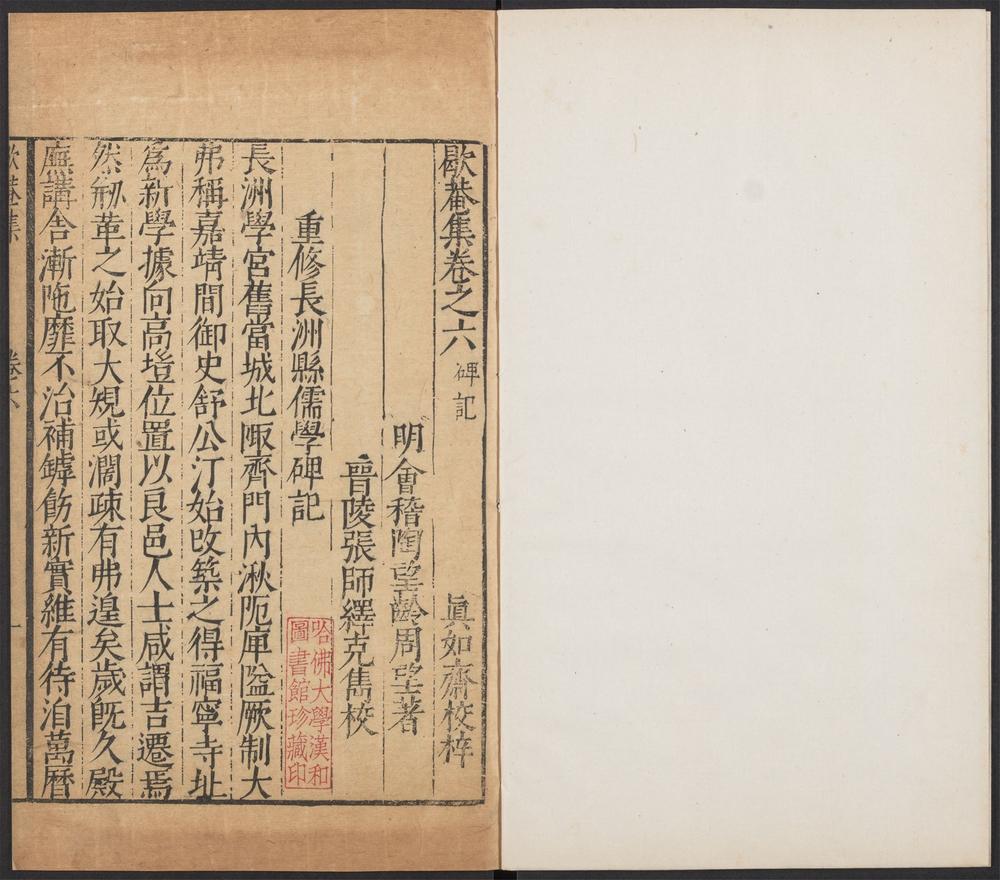 歇菴集卷之六 碑記 眞如齋校梓
明會稽陶望齡周望著
晉陵張師繹克雋校
重修長洲縣儒學碑記
長洲學宮舊當城北陬齊門內湫阨庳隘厥制大
弗稱嘉靖間御史舒公汀始改築之得福寧寺址
爲新學據向高塏位置以良邑人士咸謂吉遷焉
然剏革之始取大䂓或濶疎有弗遑矣歲旣久殿
廡講舍漸陁靡不治補罅飭新實維有待洎萬曆
歇菴集 卷六 一
哈佛大學漢和
圖書館珍藏印